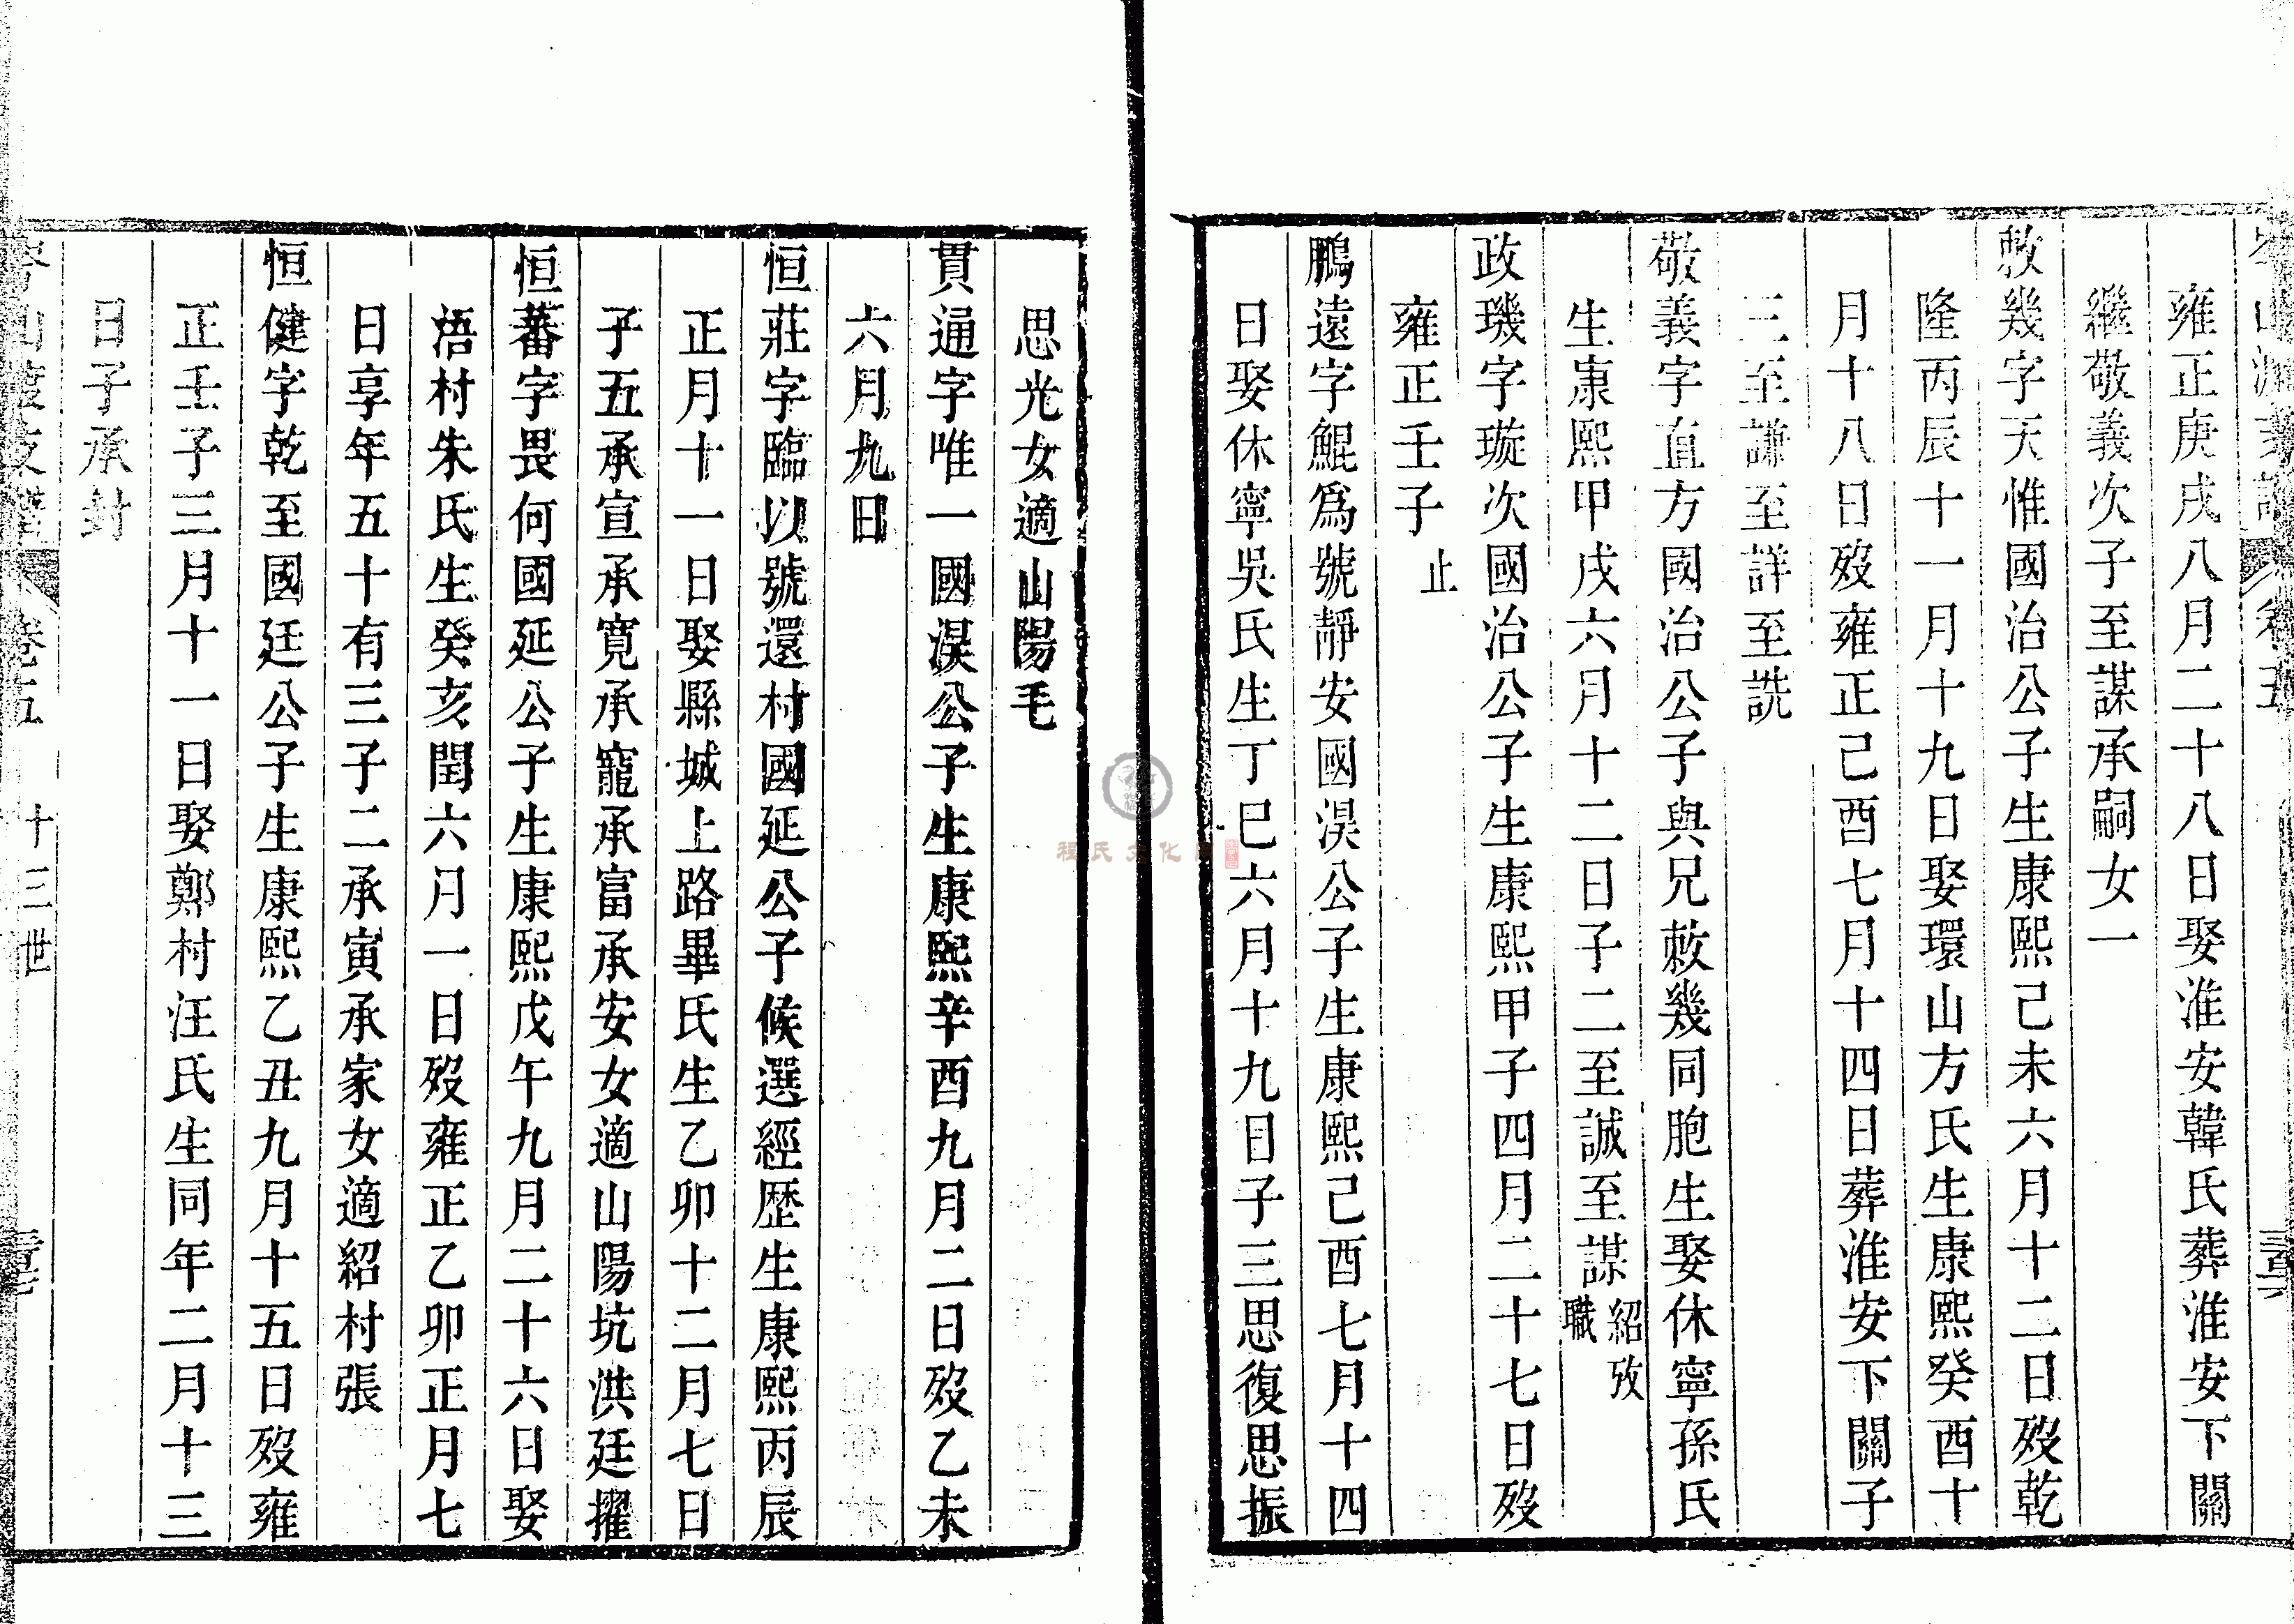 雍正庚戌八月二十八日娶淮安韓氏葬淮安下關
繼敬義次子至謀承嗣女一
敕幾字天惟國治公子生康熙己未六月十二日歿乾
隆丙辰十一月十九日娶環山方氏生康熙癸酉十
月十八日歿雍正己酉七月十四日葬淮安下關子
三至謙至詳至詵
敬義字直方國治公子與兄敕幾同胞生娶休寧孫氏
生康熙甲戌六月十二日子二至誠至謀紹攷職
政璣字璇次國治公子生康熙甲子四月二十七日歿
雍正壬子止
鵬遠字鯤爲號靜安國淏公子生康熙己酉七月十四
日娶休寧吳氏生丁巳六月十九日子三思復思振
思光女適山陽毛
貫通字唯一國淏公子生康熙辛酉九月二日歿乙未
六月九日
恒莊字臨以號還村國延公子候選經歷生康熙丙辰
正月十一日娶縣城上路畢氏生乙卯十二月七日
子五承宣承寬承寵承富承安女適山陽坑洪廷擢
恒蕃字畏何國延公子生康熙戊午九月二十六日娶
梧村朱氏生癸亥閏六月一日歿雍正乙卯正月七
日享年五十有三子二承寅承家女適紹村張
恒健字乾至國廷公子生康熙乙丑九月十五日歿雍
正壬子三月十一日娶鄭村汪氏生同年二月十三
日子承封
卷五 十三世
程氏文化